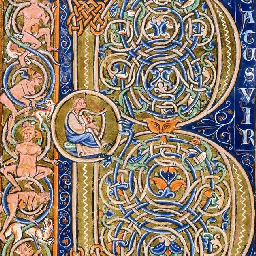 B
ATUSVIR